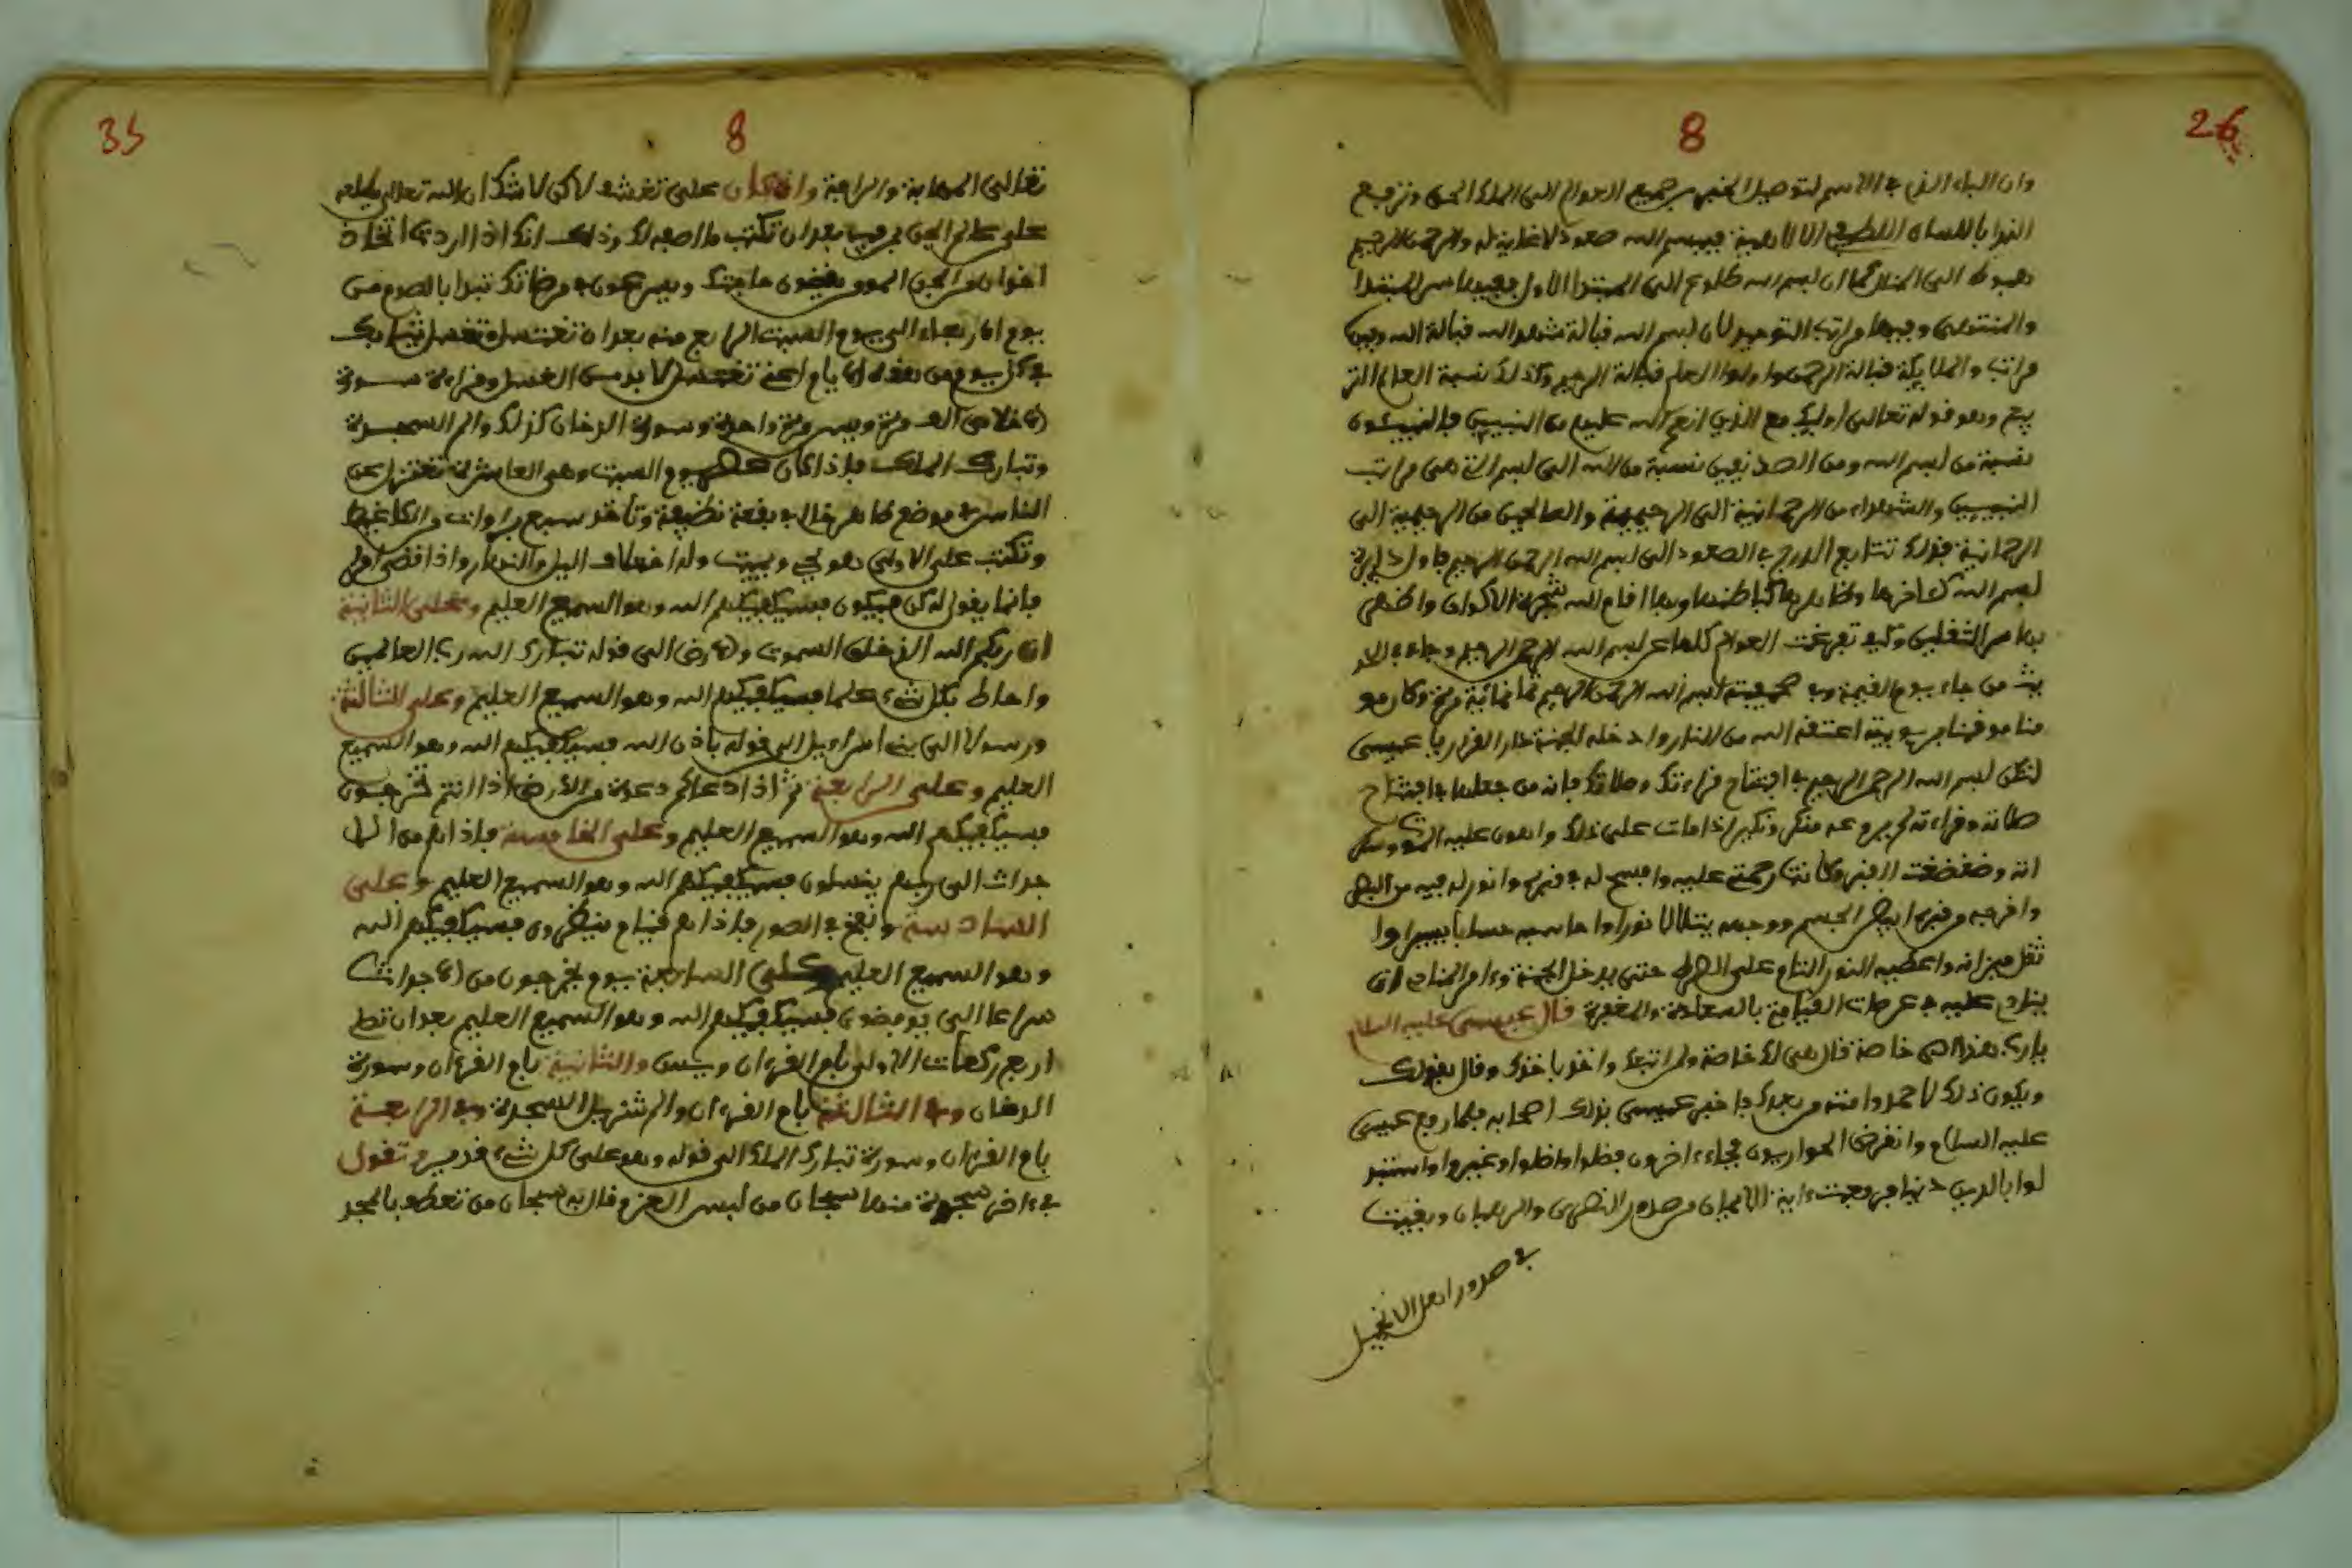 26
8
وان الباء الذي في الاسم لتوصيل الخير من جميع العوالم الى الملك الحق وترجيع
النداء باللسان اللطيف الا لالهية فببسم الله صعود لا غاية له والرحمن الرحيم
هبوط الى المنال كما ان لبسم الله طلوع الى المبتدا الاول ففيها سر المبتدا
والمنتهى وفيها مراتب التوحيد لان لبسم الله قبالة شهد الله قبالة الله وفيه
مراتب والملايكة قبالة الرحمن واولوا العلم قبالة الرحيم وكذلك نسبة العالم التر
يتم وهو قوله تعالى اوليك مع الذين انعم الله عليهم من النبيين فالنبيئون
نسبة من لبسم الله ومن الصديقين نسبة من الله الى لبسم التي هي مراتب
النبيين والشهداء من الرحمانية الى الرحيمية والصالحين من الرحيمية الى
الرحمانية فولك تتابع الدرج في الصعود الى لبسم الله الرحمن الرحيم فاول دايرة
لبسم الله كاخرها وظاهرها كباطنها وبها اقام الله شجرة الاكوان واظهر
بها سر الثقلين وكيف تفرعت العوالم كلها عن لبسم الله الرحمن الرحيم وجاء في الحد
يث من جاء يوم القيمة وفي صحيفته لبسم الله الرحمن الرحيم ثمانمائة مرة وكان مو
منا موقنا بربوبيته اعتقه الله من النار وادخله الجنة دار القرار يا عيسى
لتكن لبسم الله الرحمن الرحيم في افتتاح قراءتك وصلاتك فانه من جعلها في افتتاح
صلاته وقراءته لم يروعه منكر ونكير اذا مات على ذلك واهون عليه الموت وسكر
اته وضغضغت القبر وكانت رحمتي عليه وافسح له في قبره وانور له فيه مد البصر
واخرجه من قبره ابيض الجسم ووجهه يتلالا نورا واحاسبه حسابا يسيرا وا
ثقل ميزانه واعطيه النور التام على الصراط حتى يدخل الجنة وءامر المنادي ان
ينادي عليه في عرصات القيامة بالسعادة والمغفرة قال عيسى عليه السلام
يارب هذا الي خاصة قال هي لك خاصة ولمن اتبعك واخذ باخذك وقال بقولك
ويكون ذلك لاحمد وامته من بعدك فاخبر عيسى بذلك اصحابه فلما رفع عيسى
عليه السلام وانقرض الحواريون فجاء ءاخرون فضلوا واضلوا وغيروا واستبد
لوا بالدين دنيا فرفعت ءاية الامان من صدور النصرى والرهبان وبقيت
في صدور اهل الانجيل
35
8
تعالى المهابة والراحة وان كان على تغرشف لاكن لا شك ان الله تعالى
على عالم الجن من حيث بعد ان تكتب ما اصفه لك وذلك انك اذا اردت اتخاذ
اخوان من الجن المومن يقضون حاجتك ويسرعون في مرضاتك تبدا بالصوم من
يوم الاربعاء الى يوم السبت الرابع منه بعد ان تغتسل وتغسل ثيابك
في كل يوم من هذه الايام اعني تغتسل لا بد من الغسل وقراءة سورة
الاخلاص الف مرة ويس مرة واحدة وسورة الدخان كذلك والم السجدة
وتبارك الملك فاذا كان عصر يوم السبت وهو العاشرة تعتزل عن
الناس في موضع طاهر خال في بقعة نظيفة وتاخذ سبع براوات من الكاغيط
وتكتب على الاولى هو يحي ويميت وله اختلاف اليل والنهار واذا قضى امرا
فانما يقول له كن فيكون فسيكفيكهم الله وهو السميع العليم وعلى الثانية
ان ربكم الله الذي خلق السموت والارض الى قوله تبارك الله رب العالمين
واحاط بكل شيء علما فسيكفيكهم الله وهو السميع العليم وعلى الثالثة
ورسولا الى بني اسراءيل الى قوله باذن الله فسيكفيكهم الله وهو السميع
العليم وعلى الرابعة ثم اذا دعاكم دعوة من الارض اذا انتم تخرجون
فسيكفيكهم الله وهو السميع العليم وعلى الخامسة فاذا هم من الا
جداث الى ربهم ينسلون فسيكفيكهم الله وهو السميع العليم وعلى
السادسة ونفخ في الصور فاذا هم قيام ينظرون فسيكفيكهم الله
وهو السميع العليم وعلى السابعة يوم يخرجون من الاجداث
سراعا الى يوفضون فسيكفيكهم الله وهو السميع العليم بعد ان تصلي
اربع ركعات الاولى بام القرءان ويس والثانية بام القرءان وسورة
الدخان وفي الثالثة بام القرءان والم تنزيل السجدة وفي الرابعة
بام القرءان وسورة تبارك الملك الى قوله وهو على كل شيء قدير تقول
في ءاخر سجدة منها سبحان من لبس العز وقال به سبحان من تعطف بالمجد